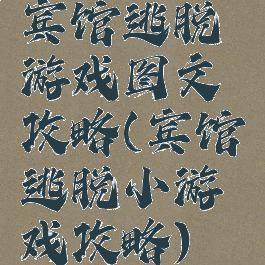 宾馆逃脱
游戏图文
攻略(宾馆
逃脱小游
戏攻略)